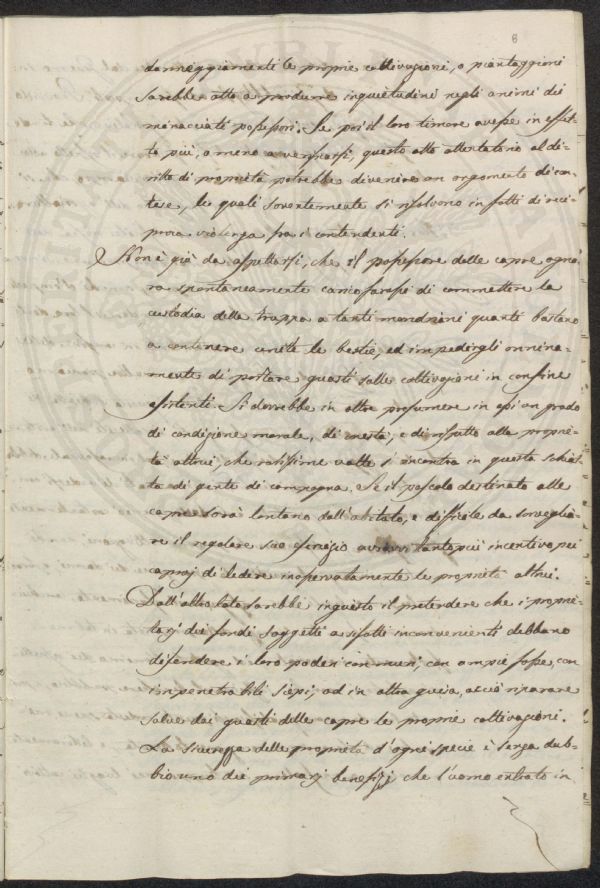 6
danneggiamenti le proprie coltivazioni, o piantaggioni
sarebbe atto a produrre inquietudini negli animi dei
minacciati possessori. Se poi il loro timore avesse in effet-
to più, o meno a verificarsi, questo atto attentatorio al di-
ritto di proprietà potrebbe divenire un argomento di con-
tese, le quali soventemente si risolvono in fatti di reci-
proca violenza fra i contendenti.
Non è già da aspettarsi, che il possessore delle capre ogno-
ra spontaneamente caricosarassi di commettere la
custodia della truppa a tanti mandriani quanti bastano
a contenere unite le bestie, ed impedirgli onnina-
mente di portare guasti sulle coltivazioni in confine
esistenti. Si dovrebbe in oltre presumere in essi un grado
di condizione morale, di onestà, e di rispetto alla proprie-
tà altrui, che rarissime volte s'incontra in questa schiat-
ta di gente di campagna. Se il pascolo destinato alle
capre sarà lontano dall'abitato, e difficile da sorveglia-
re il regolare suo esercizio avravvi tanto più incentivo pei
capraj di ledere inosservatamente le proprietà altrui.
Dall'altro lato sarebbe ingiusto il pretendere che i proprie-
tarj dei fondi soggetti a siffatti inconvenienti debbano
difendere i loro poderi con muri, con ampie fosse, con
impenetrabili siepi, od in altra guisa, acciò riparare
salve dai guasti delle capre le proprie coltivazioni.
La sicurezza delle proprietà d'ogni specie è senza dub-
bio uno dei primarj benefizj che l'uomo entrato in